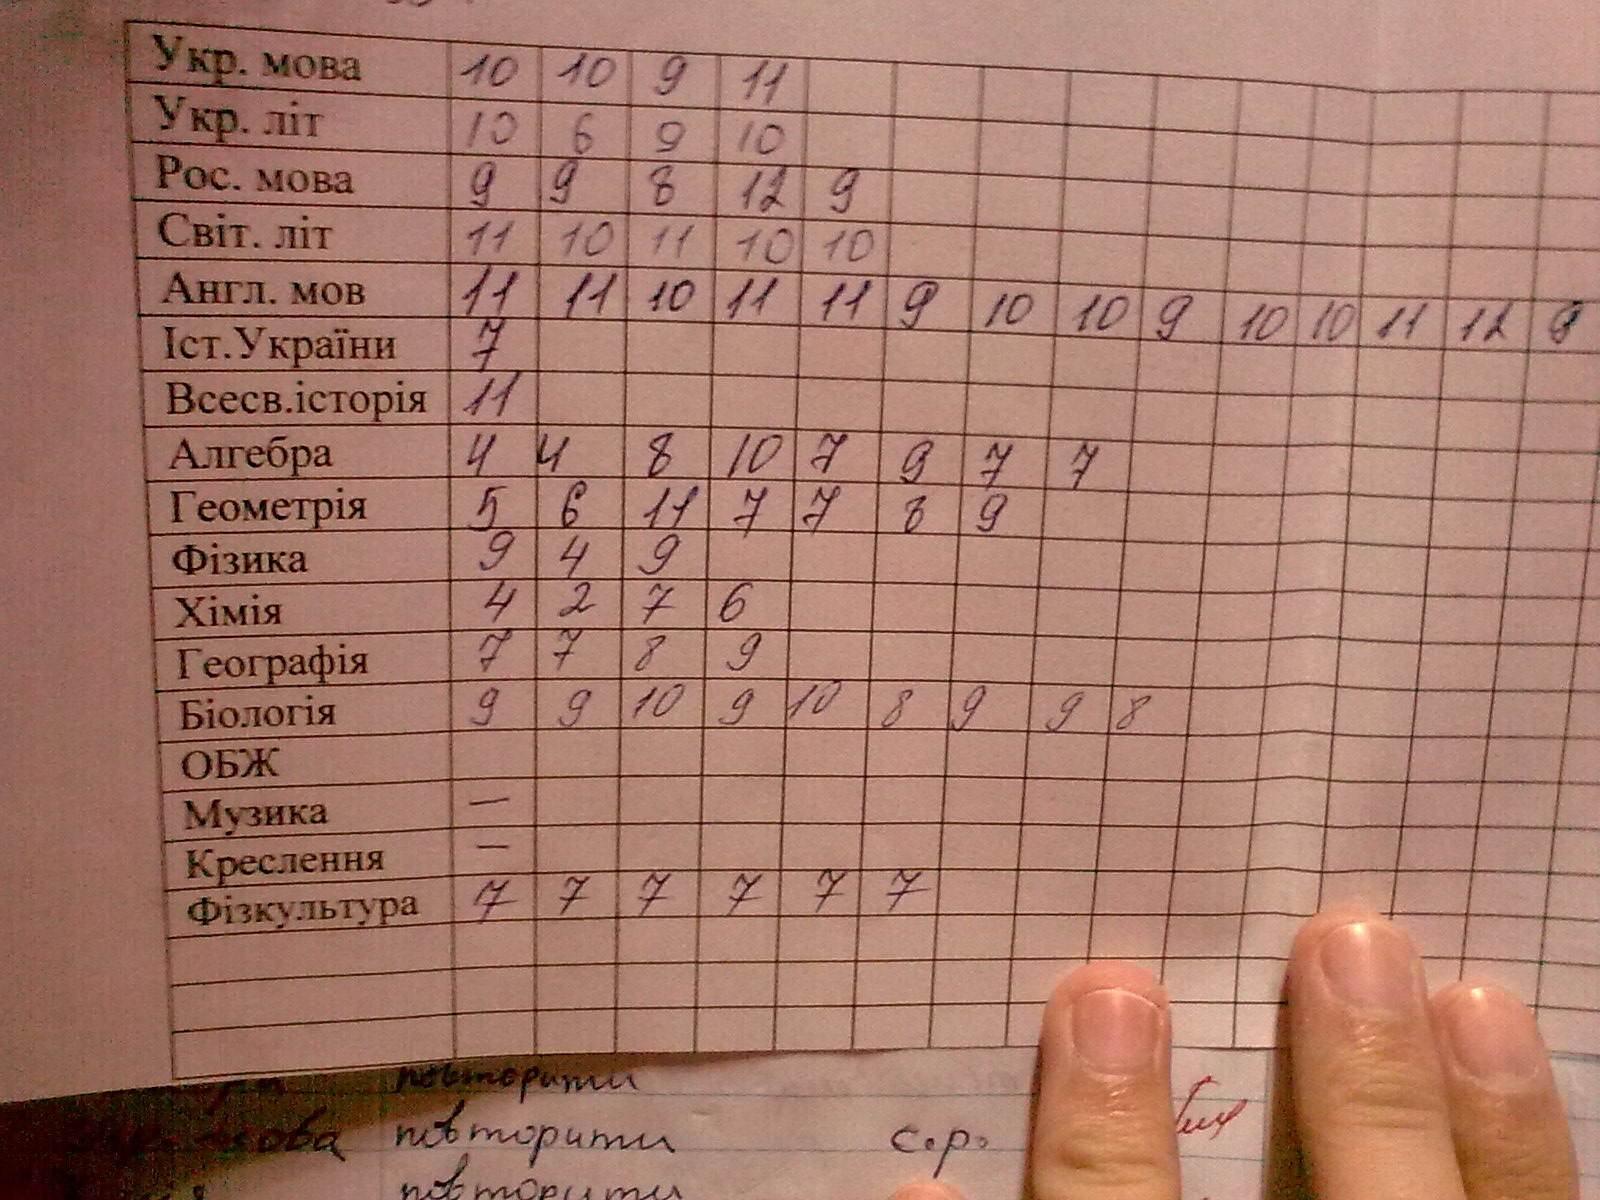 Укр. мова 10 10 9 11
Укр. літ 10 6 9 10
Рос. мова 9 9 8 12 9
Світ. літ 11 10 11 10 10
Англ. мов 11 11 10 11 11 9 10 10 9 10 10 11 12 9
Іст.України 7
Всесв.історія 11
Алгебра 4 4 8 10 7 9 7 7
Геометрія 5 6 11 7 7 8 9
Фізика 9 4 9
Хімія 4 2 7 6
Географія 7 7 8 9
Біологія 9 9 10 9 10 8 9 9 8
ОБЖ
Музика —
Креслення —
Фізкультура 7 7 7 7 7 7
повторити
мова повторити с.р.
повторити